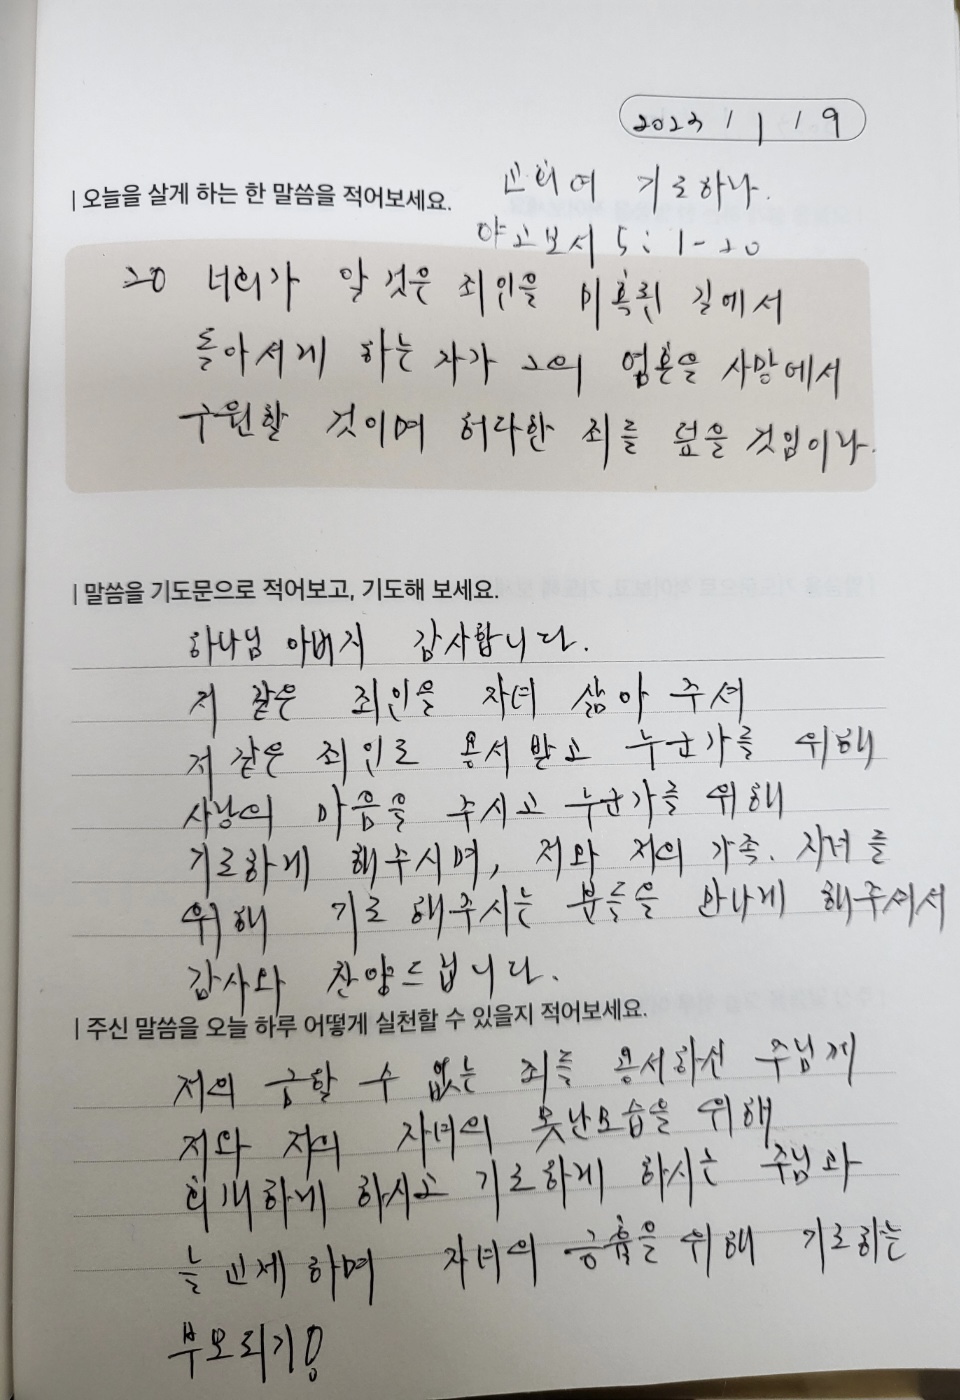 2023 / 1 / 19
교회여 기도하나.
| 오늘을 살게 하는 한 말씀을 적어보세요.
야고보서 5: 1-20
20 너희가 알 것은 죄인을 미혹된 길에서
돌아서게 하는 자가 그의 영혼을 사망에서
구원할 것이며 허다한 죄를 덮을 것임이라.
| 말씀을 기도문으로 적어보고, 기도해 보세요.
하나님 아버지 감사합니다.
저 같은 죄인을 자녀 삼아 주셔
저 같은 죄인도 용서 받고 누군가를 위해
사랑의 마음을 주시고 누군가를 위해
기도하게 해주시며, 저와 저의 가족. 자녀를
위해 기도 해주시는 분들을 만나게 해주셔서
감사와 찬양드립니다.
| 주신 말씀을 오늘 하루 어떻게 실천할 수 있을지 적어보세요.
저의 수 없는 죄를 용서하신 주님께
저와 저의 자녀의 못난모습을 위해
회개하게 하시고 기도하게 하시는 주님과
늘 교제하며 자녀의 긍휼을 위해 기도하는
부모되기!